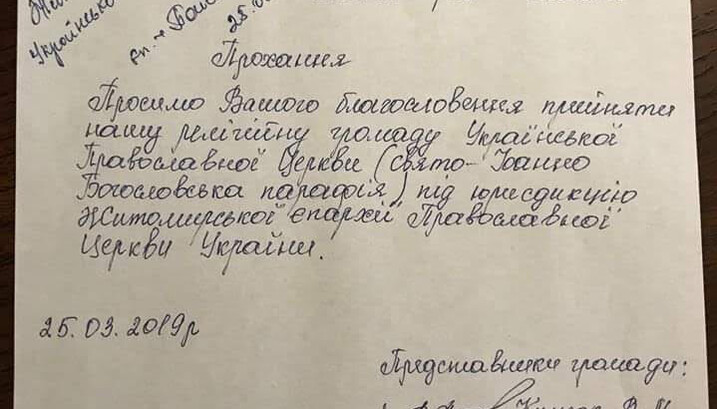 Українсько
Прохання
Просимо Вашого благословення прийняти
нашу релігійну громаду Української
Православної Церкви (Свято-Іоанно
Богословська парафія) під юрисдикцію
Житомирської єпархії Православної
Церкви України.
25.03.2019р
Представники громади: